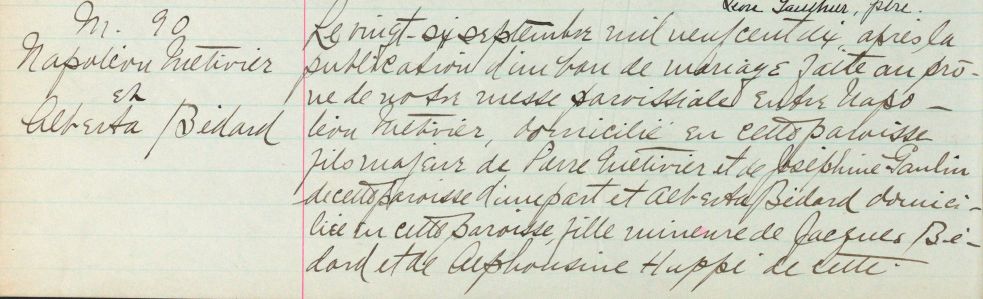 Léon Gauthier, ptre.
M. 90
Napoléon Métivier
et
Alberta Bédard
Le vingt-six septembre mil neuf cent dix, après la
publication d'un ban de mariage faite au prô-
ne de notre messe paroissiale entre Napo-
léon Métivier, domicilié en cette paroisse
fils majeur de Pierre Métivier et de Joséphine Paulin
de cette paroisse d'une part et Alberta Bédard domici-
liée en cette paroisse, fille mineure de Jacques Bé-
dard et de Alphonsine Huppé de cette